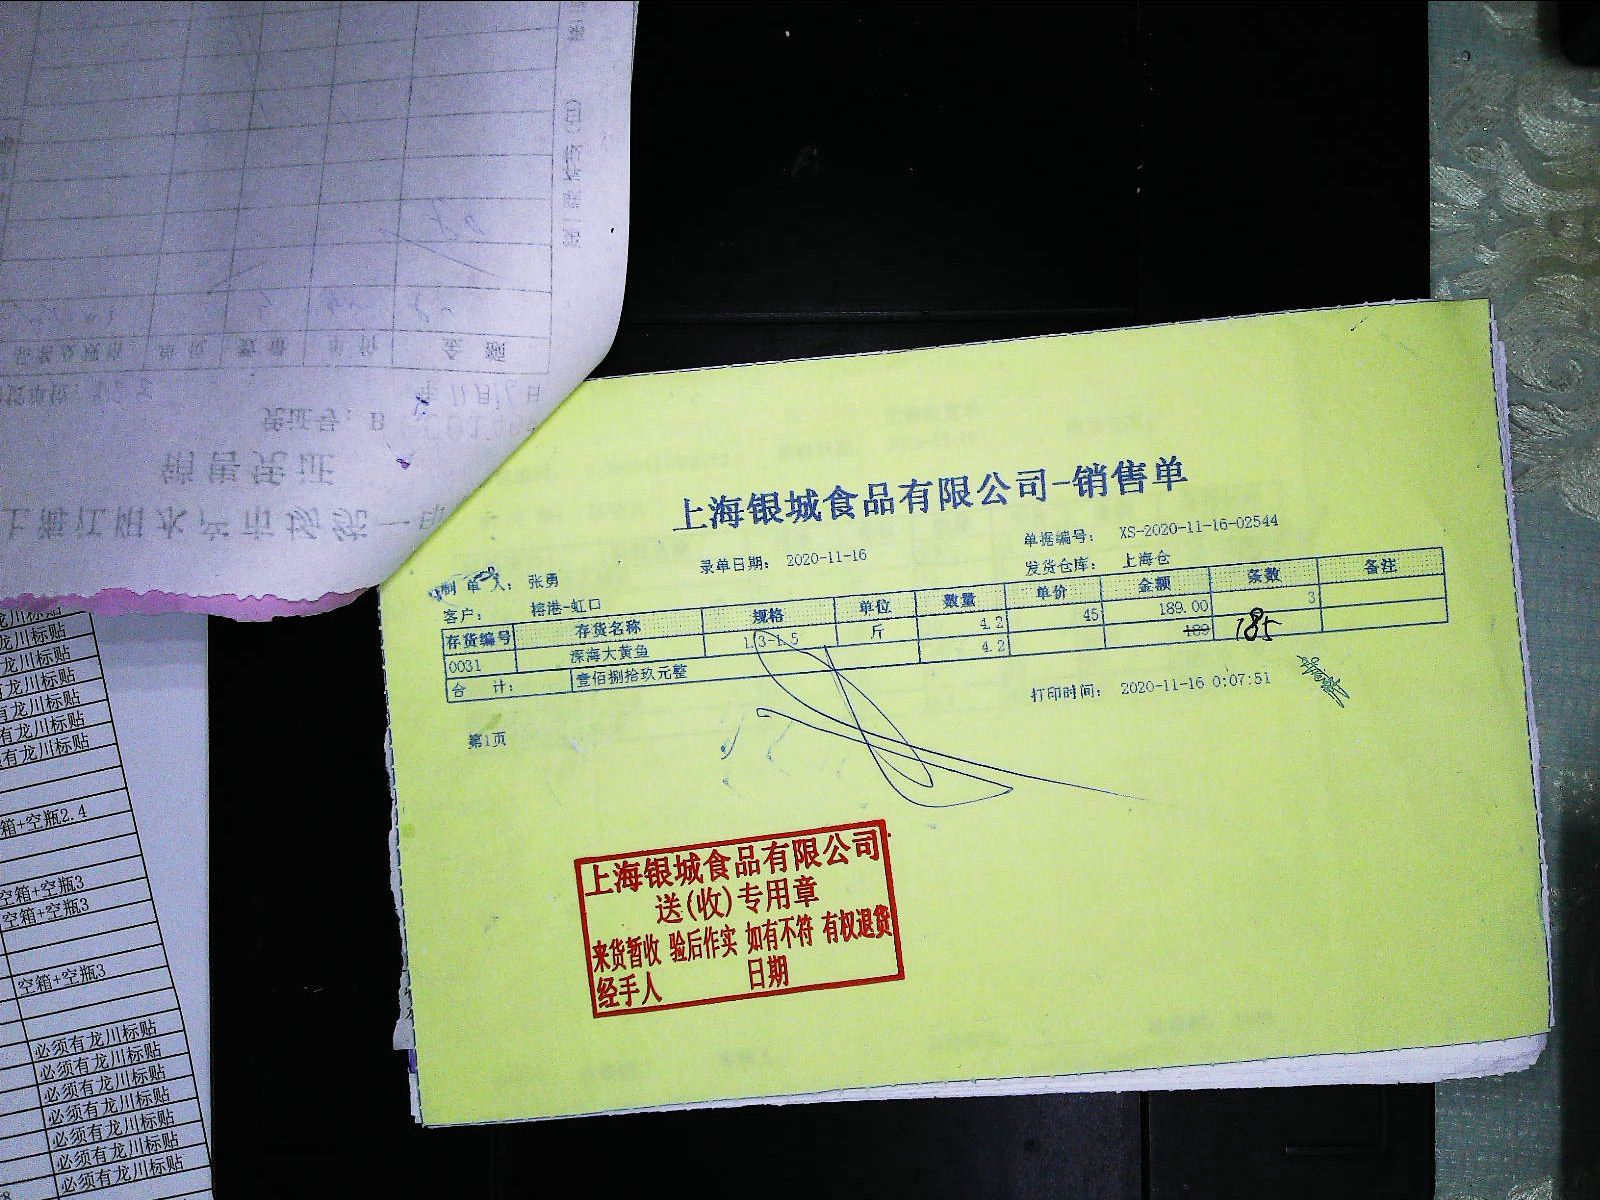 上海银城食品有限公司-销售单
制 单 人： 张勇 录单日期： 2020-11-16 单据编号： XS-2020-11-16-02544
客户： 榕港-虹口 发货仓库： 上海仓
存货编号 存货名称 规格 单位 数量 单价 金额 条数 备注
0031 深海大黄鱼 1.3-1.5 斤 4.2 45 189.00 3
合 计： 壹佰捌拾玖元整 4.2 189 185
打印时间： 2020-11-16 0:07:51
第1页
上海银城食品有限公司
送(收)专用章
来货暂收 验后作实 如有不符 有权退货
经手人 日期
上海江阳水产市场统一
销售凭证
凭证号：B
年11月16日
金 额
龙川标贴
龙川标贴
龙川标贴
有龙川标贴
有龙川标贴
有龙川标贴
有龙川标贴
箱+空瓶2.4
空箱+空瓶3
空箱+空瓶3
空箱+空瓶3
必须有龙川标贴
必须有龙川标贴
必须有龙川标贴
必须有龙川标贴
必须有龙川标贴
必须有龙川标贴
必须有龙川标贴